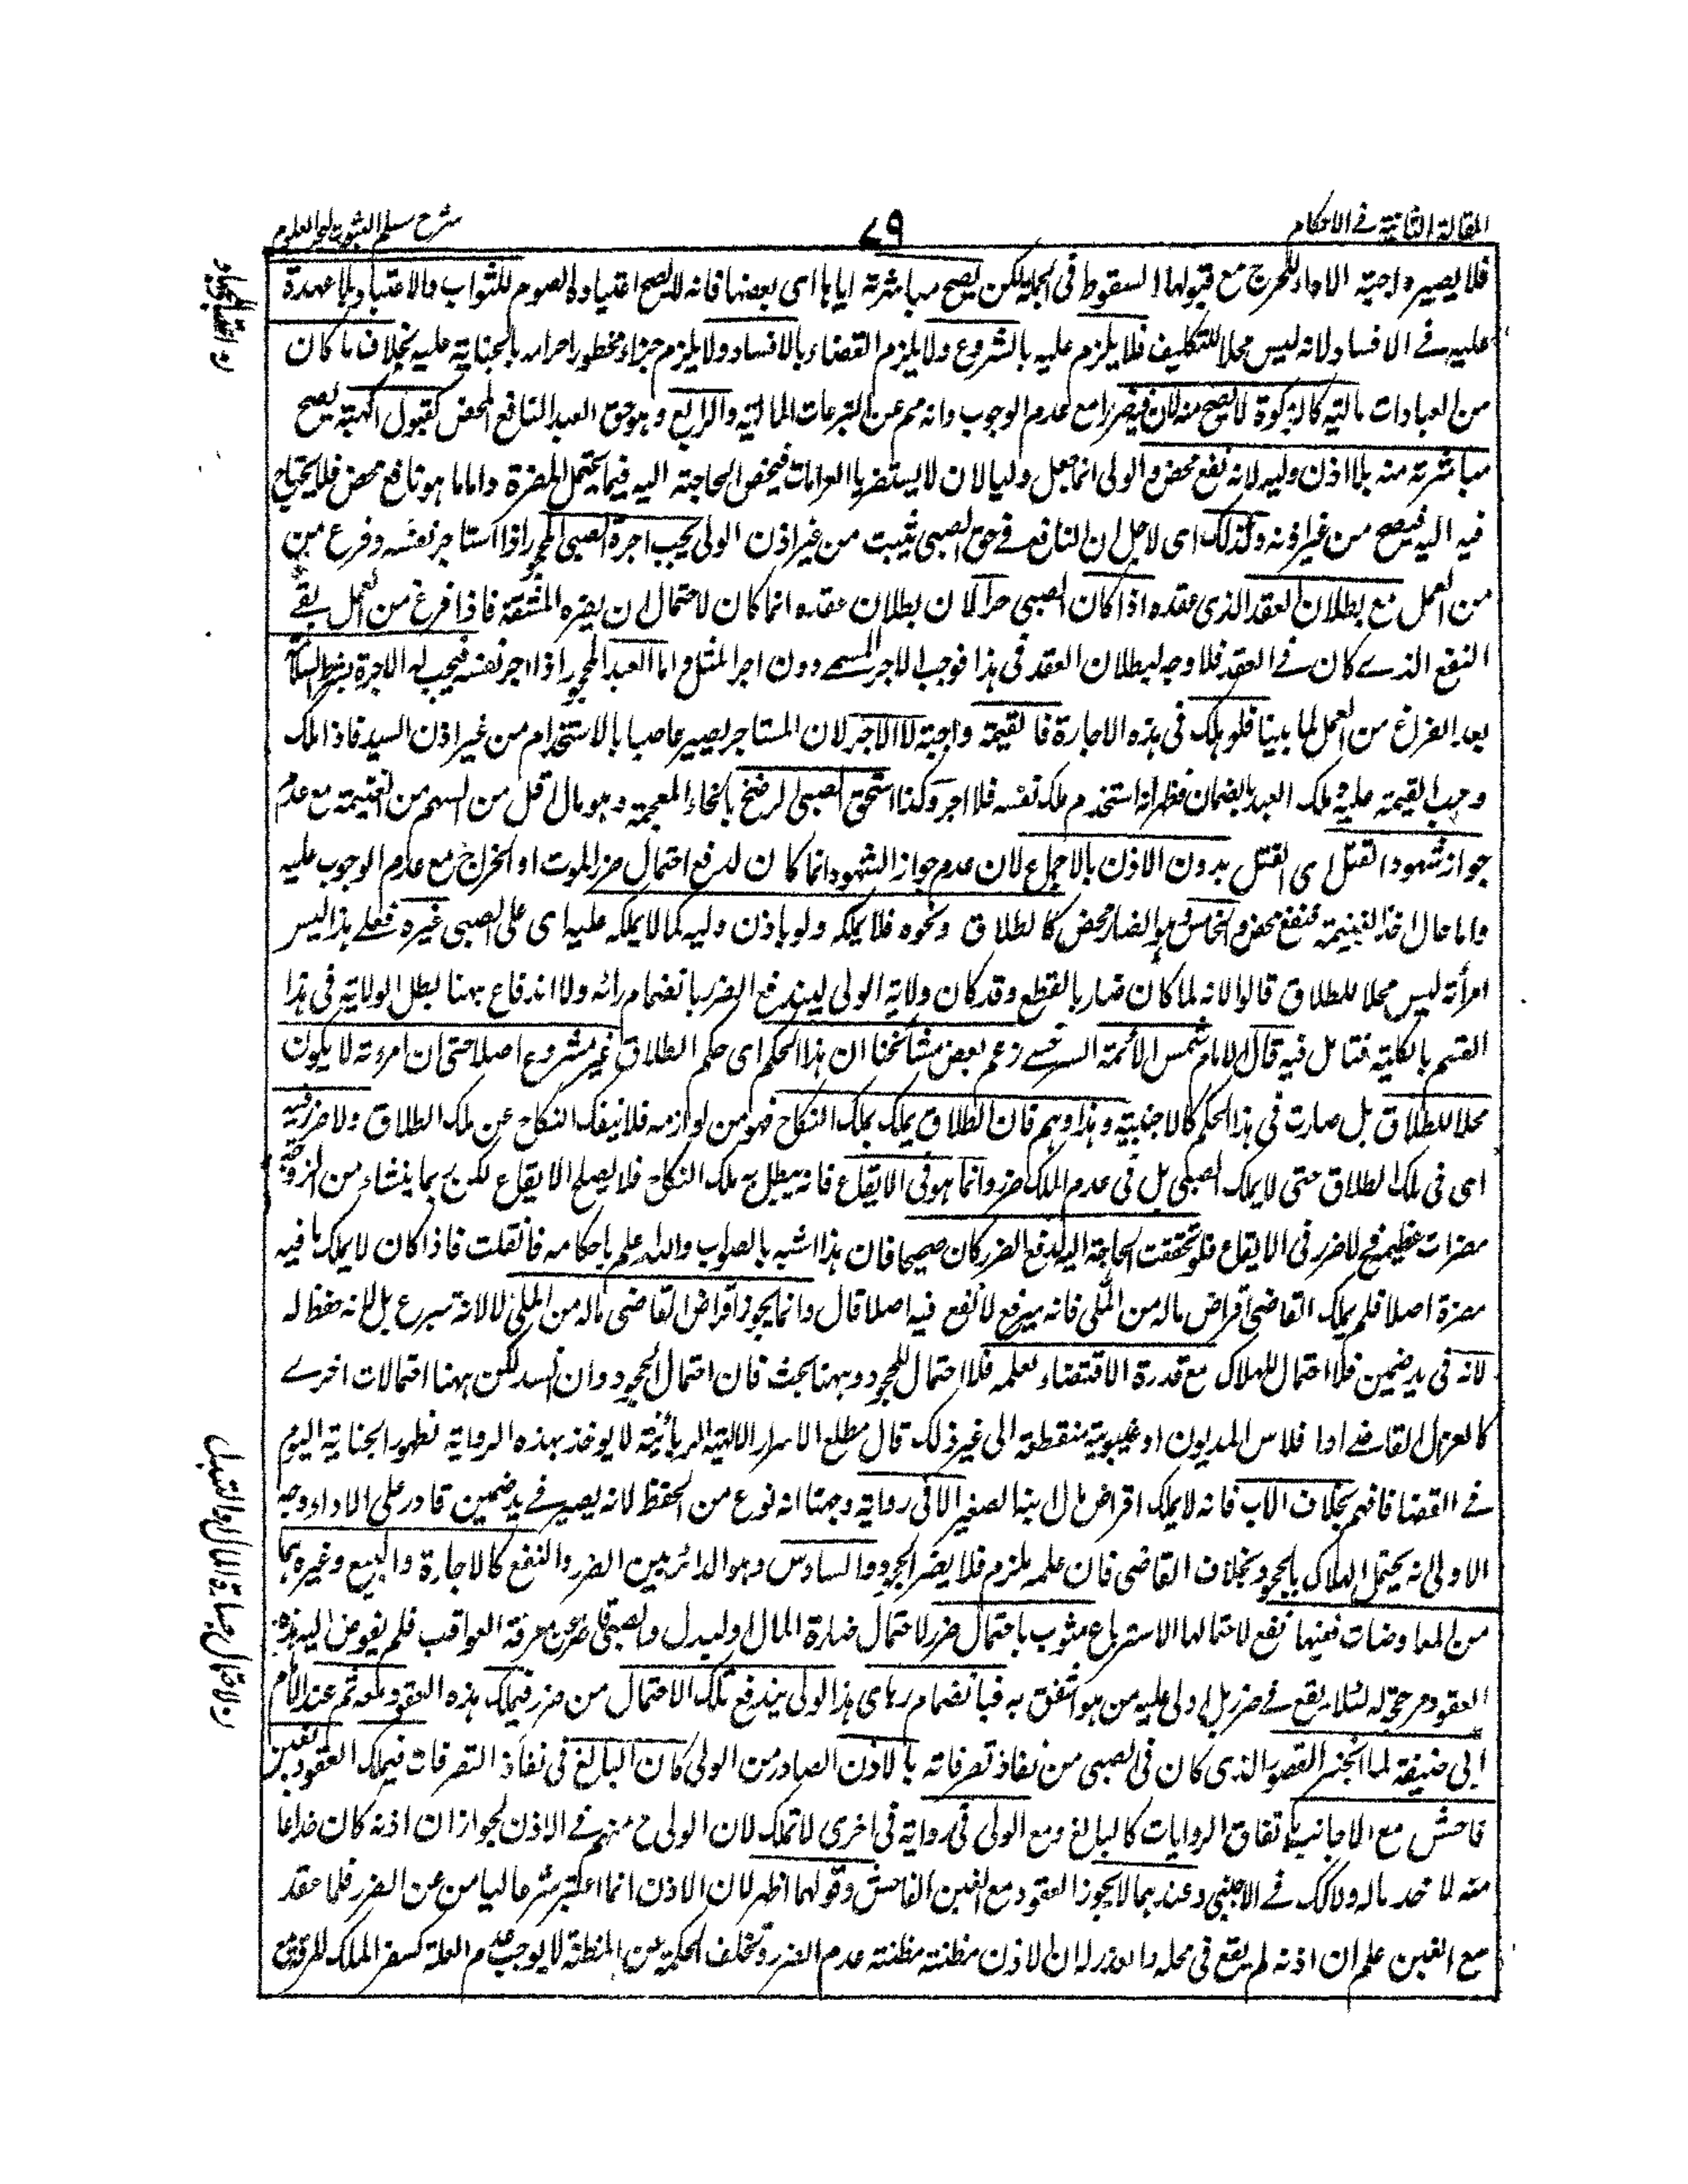 المقالة الثانية فى الاحكام
٧٩
شرح مسلم الثبوت لبحر العلوم
فلا يصير واجبة الاداء للحرج مع قبولها السقوط فى الجملة لكن يصح مباشرته اياها اى بعضها فانه لا يصح اعتياده الصوم للثواب والاعتياد بلا عهدة
عليه فى الافساد لانه ليس محلا للتكليف فلا يلزم عليه بالشروع ولا يلزم القضاء بالافساد ولا يلزم جزاء محظور احرامه بالجناية عليه بخلاف ما كان
من العبادات مالية كالزكوة لا يصح منه لان فيه ضررا مع عدم الوجوب وانه مم عن التبرعات المالية والرابع وهو حق العبد النافع المحض كقبول الهبة يصح
مباشرته منه بلا اذن وليه لانه نفع محض والولى انما جعل وليا لان لا يستضر بالغرامات فيخص الحاجة اليه فيما يحتمل المضرة واما ما هو نافع محض فلا يحتاج
فيه اليه فيصح من غير اذنه ولذلك اى لاجل ان النافع فى حق الصبى يثبت من غير اذن الولى يجب اجرة الصبى المحجور اذا استاجر نفسه وفرغ من
من العمل مع بطلان العقد الذى عقده اذا كان الصبى حرا لان بطلان عقده انما كان لاحتمال ان يضره المشقة فاذا فرغ من العمل بقى
النفع الذى كان فى العقد فلا وجه لبطلان العقد فى هذا فوجب الاجر المسمى دون اجر المثل واما العبد المحجور اذا اجر نفسه فيجب له الاجرة بشرط السلامة
بعد الفراغ من العمل لما بينا فلو هلك فى هذه الاجارة فالقيمة واجبة لا الاجر لان المستاجر يصير غاصبا بالاستخدام من غير اذن السيد فاذا هلك
وجب القيمة عليه وملك العبد بالضمان فظهر انه استخدم ملك نفسه فلا اجر وكذا استحق الصبى الرضخ بالخاء المعجمة وهو مال اقل من السهم من الغنيمة مع عدم
جواز شهود القتل اى القتل بدون الاذن بالاجماع لان عدم جواز الشهود انما كان لدفع احتمال ضرر الموت او الجراح مع عدم الوجوب عليه
واما حال اخذ الغنيمة فنفع محض والخامس هو الضار محض كالطلاق ونحوه فلا يملكه ولو باذن وليه كما لا يملكه عليه اى على الصبى غيره فعلى هذا ليس
امرأته ليس محلا للطلاق قالوا لانه لما كان ضارا بالقطع وقد كان ولاية الولى ليندفع الضرر بانضمام رائه ولا اندفاع ههنا بطل الولاية فى هذا
القسم بالكلية فتامل فيه قال الامام شمس الائمة السرخسى زعم بعض مشائخنا ان هذا الحكم اى حكم الطلاق غير مشروع اصلا حتى ان امرءته لا يكون
محلا للطلاق بل صارت فى هذا الحكم كالاجنبية وهذا وهم فان الطلاق يملك بملك النكاح فهو من لوازمه فلا ينفك النكاح عن ملك الطلاق ولا ضرر فيه
اى فى ملك الطلاق حتى لا يملك الصبى بل فى عدم الملك ضرر وانما هو فى الايقاع فانه يبطل به ملك النكاح فلا يصلح الايقاع لكن ربما ينشاء من الزوجة
مضرات عظيمة فح لا ضرر فى الايقاع فلو تحققت الحاجة اليه لدفع الضرر كان صحيحا فان هذا اشبه بالصواب والله اعلم باحكامه فان قلت فاذا كان لا يملك ما فيه
مضرة اصلا فلم يملك القاضى اقراض ماله من الملى فانه تبرع لا نفع فيه اصلا قال وانما يجوز اقراض القاضى ماله من الملى لا لانه تبرع بل لانه حفظ له
لانه فى يد ضمين فلا احتمال للهلاك مع قدرة الاقتضاء لعلمه فلا احتمال للجحود وههنا بحث فان احتمال الجحود وان انسد لكن ههنا احتمالات اخرى
كالعزل القاضى او افلاس المديون او غيبوبة منقطعة الى غير ذلك قال مطلع الاسرار الالهية الربانية لا يوخذ بهذه الرواية لظهور الجناية اليوم
فى القضا فافهم بخلاف الاب فانه لا يملك اقراض مال ابنه الصغير الا فى رواية وجهها انه نوع من الحفظ لانه يصير فى يد ضمين قادر على الاداء وجه
الاولى انه يحتمل الهلاك بالجحود بخلاف القاضى فان علمه ملزم فلا يضر الجحود والسادس وهو الدائر بين الضرر والنفع كالاجارة والبيع وغيره مما
من المعاوضات ففيها نفع لاحتمالها الاسترباح مشوب باحتمال ضرر لاحتمال خسارة المال او البدل والصبى قاصر عن معرفة العواقب فلم يفوض اليه هذه
العقود مرحمة له لئلا يقع فى ضرر بل اولى عليه من هو اشفق به فبانضمام رأى هذا الولى يندفع تلك الاحتمال من ضرر فيملك هذه العقود معه ثم عند الامام
ابى حنيفة لما انجبر القصور الذى كان فى الصبى من نفاذ تصرفاته بالاذن الصادر من الولى كان كالبالغ فى نفاذ التصرفات فيملك العقود بغبن
فاحش مع الاجانب باتفاق الروايات كالبالغ ومع الولى فى رواية فى اخرى لا تملك لان الولى ح متهم فى الاذن لجواز ان اذنه كان خداعا
منه لاخذ ماله ولا كذلك فى الاجنبى وعندهما لا يجوز العقود مع الغبن الفاحش وقولهما اظهر لان الاذن انما اعتبر شرعا ليامن عن الضرر فلما عقد
مع الغبن علم ان اذنه لم يقع فى محله والعذر له ان الاذن مظنته مظنة عدم الضرر وتخلف الحكمة عن المظنة لا يوجب عدم العلة كسفر الملك المرفه